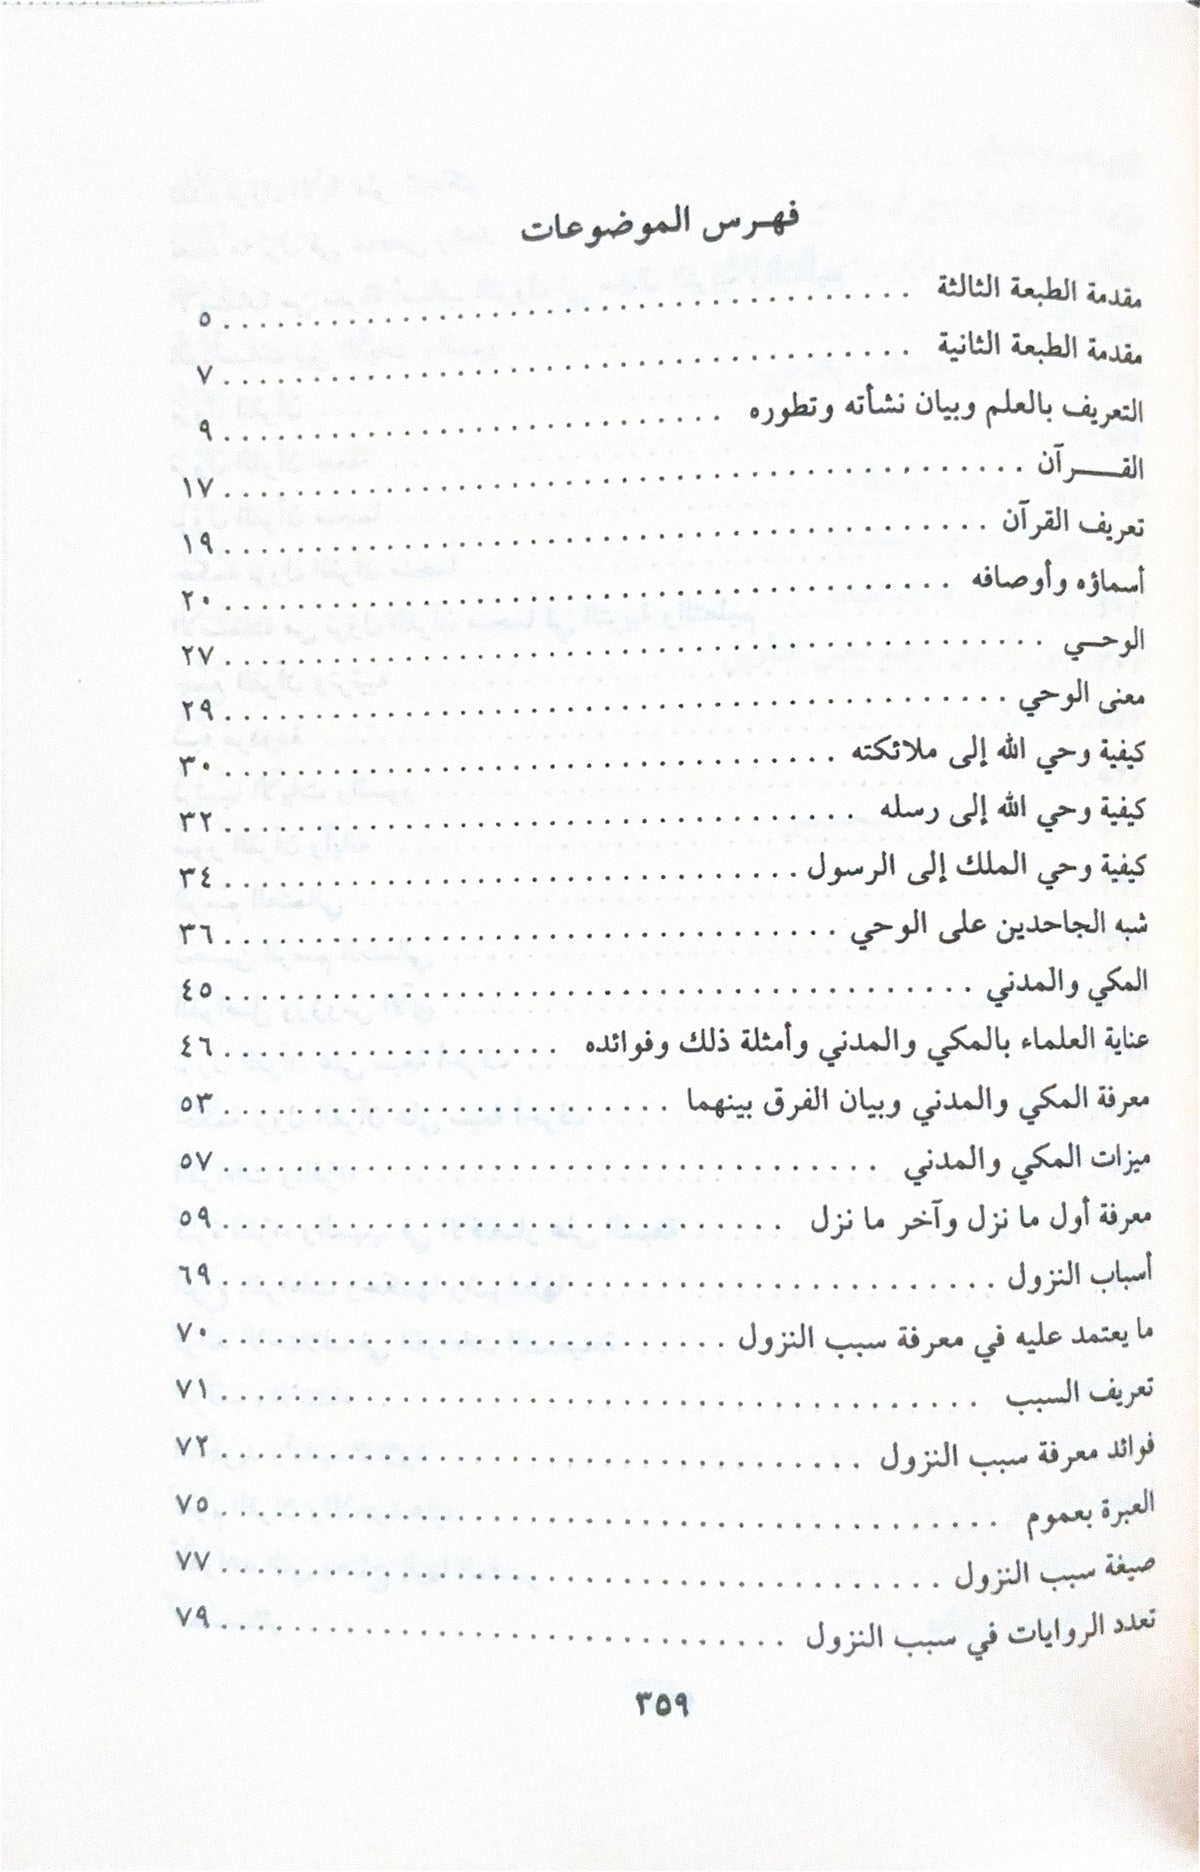 فهرس الموضوعات
مقدمة الطبعة الثالثة . . . . . . . . . . . . . . . . . . . . ٥
مقدمة الطبعة الثانية . . . . . . . . . . . . . . . . . . . . ٧
التعريف بالعلم وبيان نشأته وتطوره . . . . . . . . . . . . . . . . . . . . ٩
القـــرآن . . . . . . . . . . . . . . . . . . . . ١٧
تعريف القرآن . . . . . . . . . . . . . . . . . . . . ١٩
أسماؤه وأوصافه . . . . . . . . . . . . . . . . . . . . ٢٠
الوحـي . . . . . . . . . . . . . . . . . . . . ٢٧
معنى الوحي . . . . . . . . . . . . . . . . . . . . ٢٩
كيفية وحي الله إلى ملائكته . . . . . . . . . . . . . . . . . . . . ٣٠
كيفية وحي الله إلى رسله . . . . . . . . . . . . . . . . . . . . ٣٢
كيفية وحي الملك إلى الرسول . . . . . . . . . . . . . . . . . . . . ٣٤
شبه الجاحدين على الوحي . . . . . . . . . . . . . . . . . . . . ٣٦
المكي والمدني . . . . . . . . . . . . . . . . . . . . ٤٥
عناية العلماء بالمكي والمدني وأمثلة ذلك وفوائده . . . . . . . . . . . . . . . . . . . . ٤٦
معرفة المكي والمدني وبيان الفرق بينهما . . . . . . . . . . . . . . . . . . . . ٥٣
ميزات المكي والمدني . . . . . . . . . . . . . . . . . . . . ٥٧
معرفة أول ما نزل وآخر ما نزل . . . . . . . . . . . . . . . . . . . . ٥٩
أسباب النزول . . . . . . . . . . . . . . . . . . . . ٦٩
ما يعتمد عليه في معرفة سبب النزول . . . . . . . . . . . . . . . . . . . . ٧٠
تعريف السبب . . . . . . . . . . . . . . . . . . . . ٧١
فوائد معرفة سبب النزول . . . . . . . . . . . . . . . . . . . . ٧٢
العبرة بعموم . . . . . . . . . . . . . . . . . . . . ٧٥
صيغة سبب النزول . . . . . . . . . . . . . . . . . . . . ٧٧
تعدد الروايات في سبب النزول . . . . . . . . . . . . . . . . . . . . ٧٩
٣٥٩